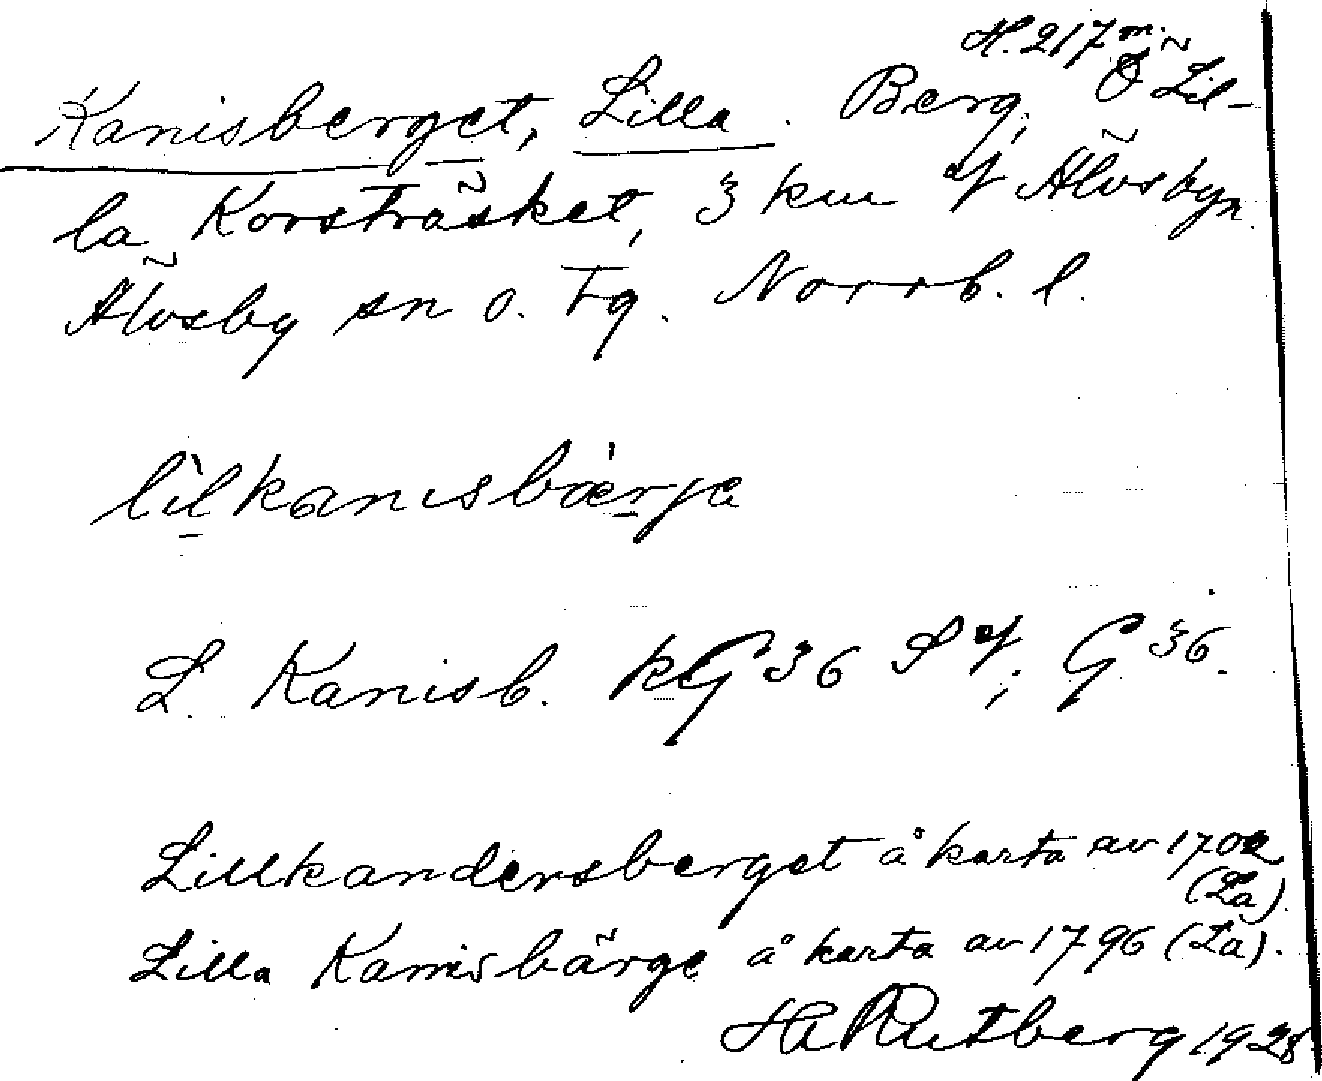 H. 217 m.
Kanisberget, Lilla. Berg, Ö Lil-
la Korsträsket, 3 km Älvsbyn.
Älvsby sn o. tg. Norrb. l.
L. Kanisb. kG 36 G 36.
Lillkandersberget å karta av 1702
(La).
Lilla Kanisbärge å karta av 1796 (La).
H Rutberg 1928